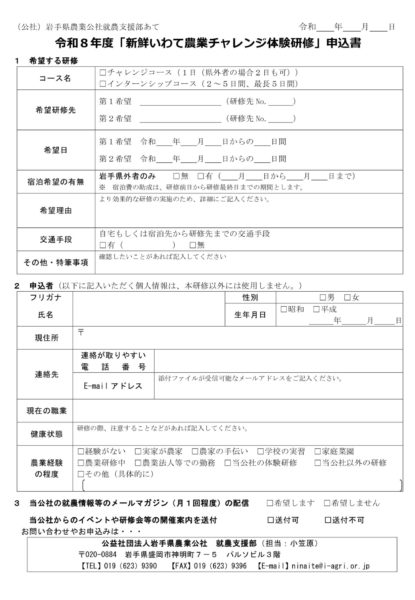 （公社）岩手県農業公社就農支援部あて　　令和　　年　　月　　日
令和８年度「新鮮いわて農業チャレンジ体験研修」申込書
１　希望する研修
コース名
□チャレンジコース（１日（県外者の場合２日も可））
□インターンシップコース（２～５日間、最長５日間）
希望研修先
第１希望　　　　　　　　（研修先 No.　　　）
第２希望　　　　　　　　（研修先 No.　　　）
希望日
第１希望　令和　　年　　月　　日からの　　日間
第２希望　令和　　年　　月　　日からの　　日間
宿泊希望の有無
岩手県外者のみ　□無　□有（　　月　　日から　　月　　日まで）
※　宿泊費の助成は、研修前日から研修最終日までの期間とします。
希望理由
より効果的な研修の実施のため、詳細にご記入ください。
交通手段
自宅もしくは宿泊先から研修先までの交通手段
□有（　　　　　　　）　□無
その他・特筆事項
確認したいことがあれば記入してください
２　申込者（以下に記入いただく個人情報は、本研修以外には使用しません。）
フリガナ
性別
□男　□女
氏名
生年月日
□昭和　□平成
年　　月　　日
現住所
〒
連絡先
連絡が取りやすい
電　話　番　号
E-mail アドレス
添付ファイルが受信可能なメールアドレスをご記入ください。
現在の職業
健康状態
研修の際、注意することなどがあれば記入してください。
農業経験
の程度
□経験がない　□実家が農家　□農家の手伝い　□学校の実習　□家庭菜園
□農業研修中　□農業法人等での勤務　□当公社の体験研修　□当公社以外の研修
□その他（具体的に）
３　当公社の就農情報等のメールマガジン（月１回程度）の配信　　□希望します　□希望しません
当公社からのイベントや研修会等の開催案内を送付　　□送付可　　□送付不可
お問い合わせやお申込みは・・・
公益社団法人岩手県農業公社　就農支援部（担当：小笠原）
〒020-0884　岩手県盛岡市神明町７－５　パルソビル３階
【TEL】019（623）9390　【FAX】019（623）9396　【E-mail】ninaite@i-agri.or.jp